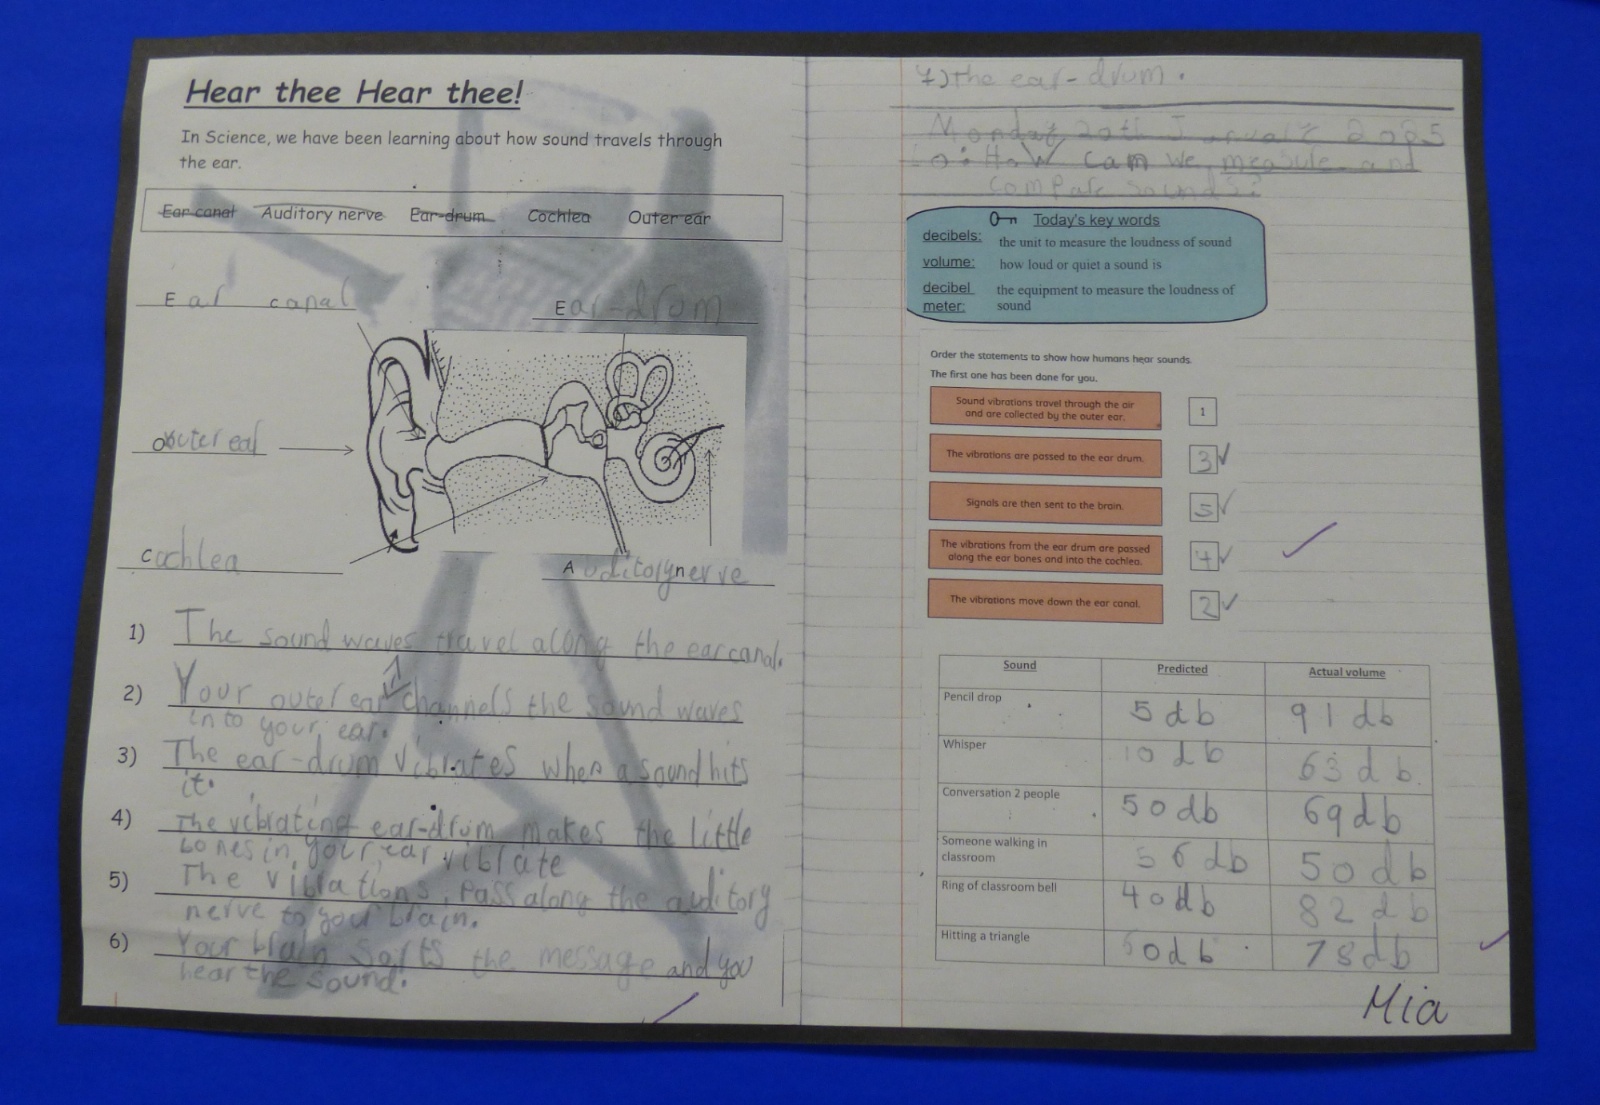 Hear thee Hear thee!
In Science, we have been learning about how sound travels through
the ear.
Ear canal Auditory nerve Ear-drum Cochlea Outer ear
Ear canal
Ear-drum
outer ear
cochlea
Auditory nerve
1) The sound waves travel along the ear canal.
2) Your outer ear channels the sound waves
into your ear.
3) The ear-drum vibrates when a sound hits
it.
4) The vibrating ear-drum makes the little
bones in your ear vibrate
5) The vibrations pass along the auditory
nerve to your brain.
6) Your brain sorts the message and you
hear the sound.
7) the ear-drum.
Monday 20th 2025
How can we measure and
compare sounds?
Today's key words
decibels: the unit to measure the loudness of sound
volume: how loud or quiet a sound is
decibel the equipment to measure the loudness of
meter: sound
Order the statements to show how humans hear sounds.
The first one has been done for you.
Sound vibrations travel through the air
and are collected by the outer ear. 1
The vibrations are passed to the ear drum. 3
Signals are then sent to the brain. 5
The vibrations from the ear drum are passed
along the ear bones and into the cochlea. 4
The vibrations move down the ear canal. 2
Sound Predicted Actual volume
Pencil drop 5 db 91 db
Whisper 10 db 63 db.
Conversation 2 people 50 db 69 db
Someone walking in
classroom 56 db 50 db
Ring of classroom bell 40 db 82 db
Hitting a triangle db 78 db
Mia